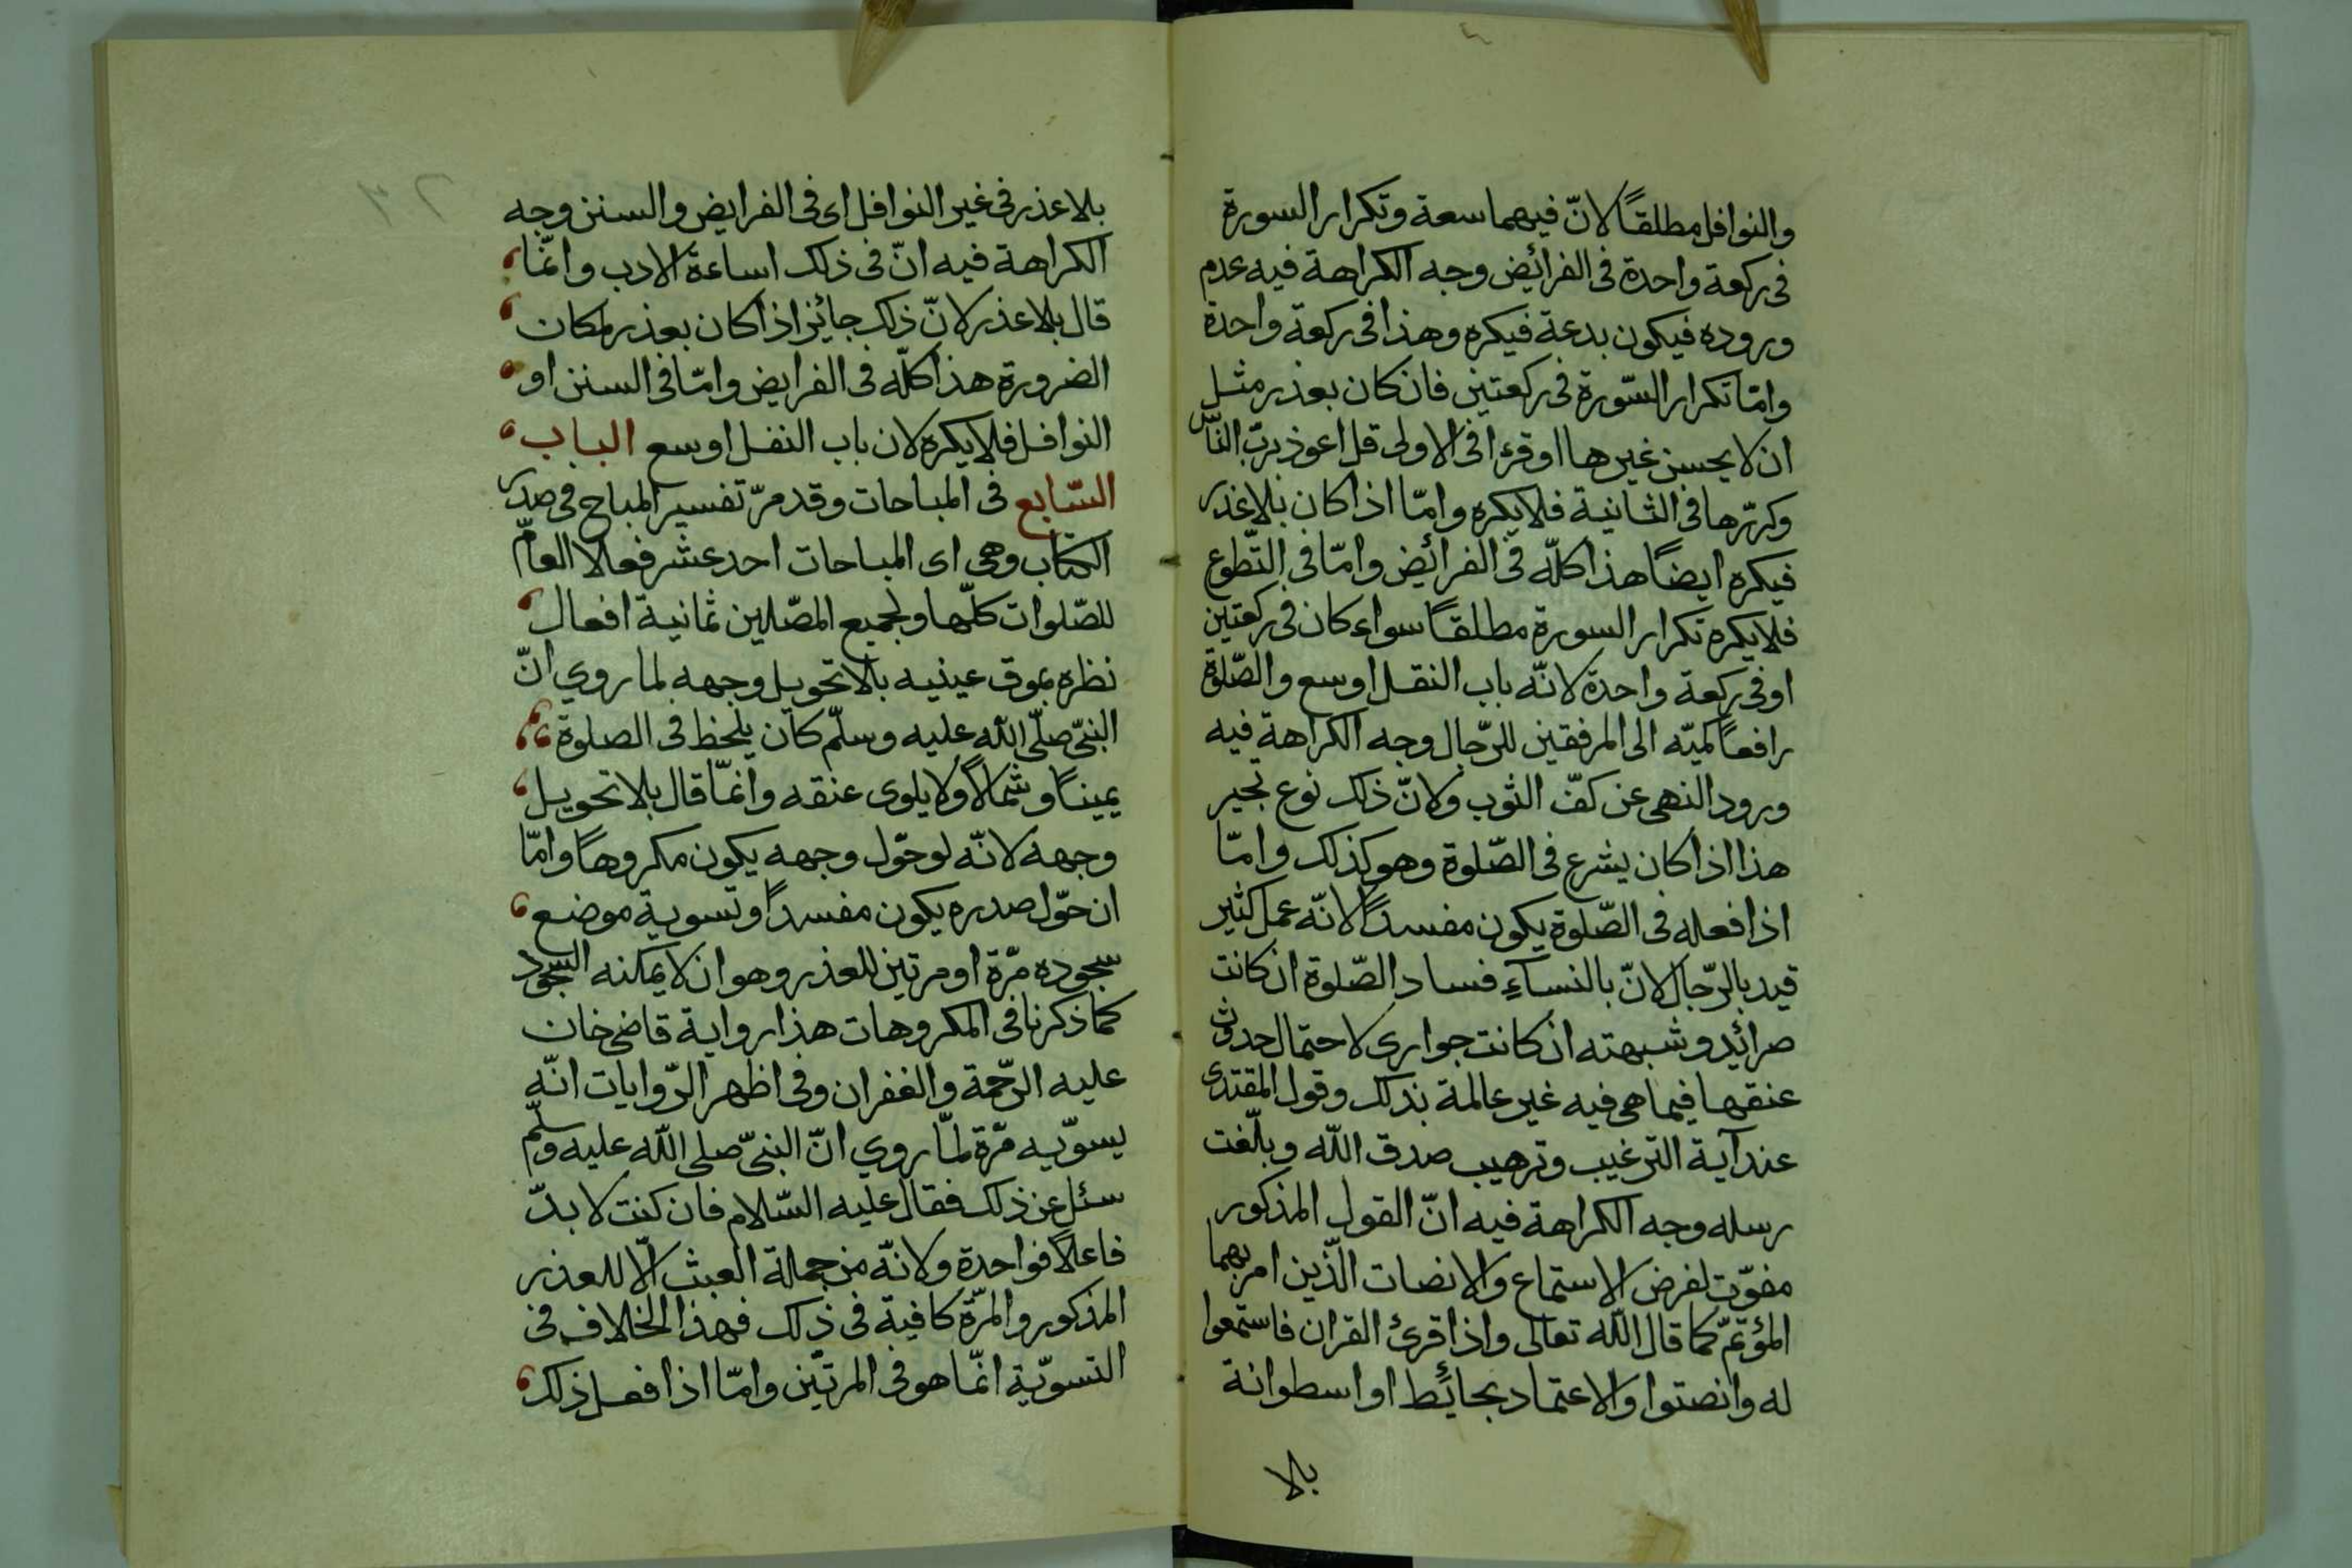 والنوافل مطلقًا لانّ فيهما سعة وتكرار السورة
فى ركعة واحدة فى الفرائض وجه الكراهة فيه عدم
وروده فيكون بدعة فيكره وهذا فى ركعة واحدة
وامّا تكرار السّورة فى ركعتين فان كان بعذر مثل
ان لا يحسن غيرها او قرء فى الاولى قل اعوذ بربّ النّاس
وكرّرها فى الثانية فلا يكره وامّا اذا كان بلا عذر
فيكره ايضًا هذا كلّه فى الفرائض وامّا فى التّطوع
فلا يكره تكرار السورة مطلقًا سواء كان فى ركعتين
او فى ركعة واحدة لانّه باب النفل اوسع والصّلوة
رافعًا كميّه الى المرفقين للرّجال وجه الكراهة فيه
ورود النهى عن كفّ الثوب ولانّ ذلك نوع تجير
هذا اذا كان يشرع فى الصّلوة وهو كذلك وامّا
اذا فعله فى الصّلوة يكون مفسدًا لانّه عمل كثير
قيد بالرّجال لانّ بالنسآءِ فساد الصّلوة ان كانت
حرائر وشبهته ان كانت جوارى لاحتمال حدوث
عنقها فيما هى فيه غير عالمة بذلك وقول المقتدى
عند آية الترغيب وترهيب صدق اللّه وبلّغت
رسله وجه الكراهة فيه انّ القول المذكور
مفوّت لفرض الاستماع والانصات الّذين امر بهما
المؤتمّ كما قال اللّه تعالى واذا قرئ القران فاستمعوا
له وانصتوا والاعتماد بحائط او اسطوانة
بلا
بلا عذر فى غير النوافل اى فى الفرايض والسنن وجه
الكراهة فيه انّ فى ذلك اساءة الادب وانّما
قال بلا عذر لانّ ذلك جائز اذا كان بعذر لمكان
الضرورة هذا كلّه فى الفرايض وامّا فى السنن او
النوافل فلا يكره لان باب النفل اوسع الباب
السّابع فى المباحات وقد مرّ تفسير المباح فى صدر
الكتاب وهى اى المباحات احد عشر فعلا العامّ
للصّلوات كلّها ولجميع المصّلين ثمانية افعال
نظره بموق عينيه بلا تحويل وجهه لما روي انّ
النبىّ صلّى اللّه عليه وسلّم كان يلحظ فى الصلوة
يمينًا وشمالًا ولا يلوى عنقه وانّما قال بلا تحويل
وجهه لانّه لو حوّل وجهه يكون مكروهًا وامّا
ان حوّل صدره يكون مفسدًا وتسوية موضع
سجوده مرّة او مرتين للعذر وهو ان لا يمكنه السّجود
كما ذكرنا فى المكروهات هذا رواية قاضى خان
عليه الرّحمة والغفران وفى اظهر الرّوايات انّه
يسوّيه مرّة لمّا روي انّ النبىّ صلى اللّه عليه وسلّم
سئل عن ذلك فقال عليه السّلام فان كنت لا بدّ
فاعلًا فواحدة ولانّه من جملة العبث الّا للعذر
المذكور والمرّة كافية فى ذلك فهذا الخلاف فى
التسويّة انّما هو فى المرتين وامّا اذا فعل ذلك